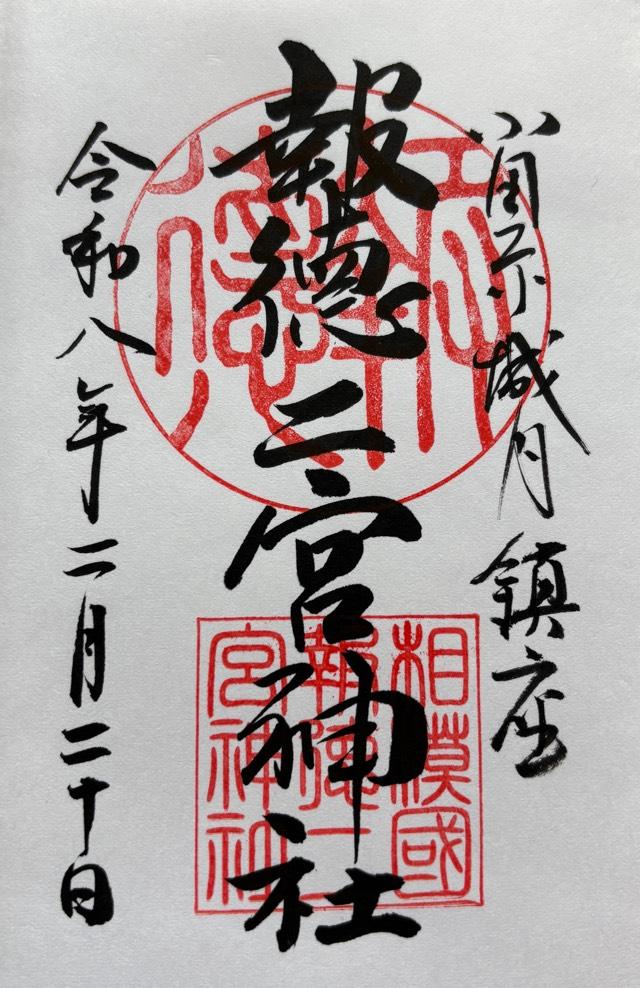 小田原城内鎮座
報徳二宮神社
令和八年二月二十日
相模國
報徳二
宮神社